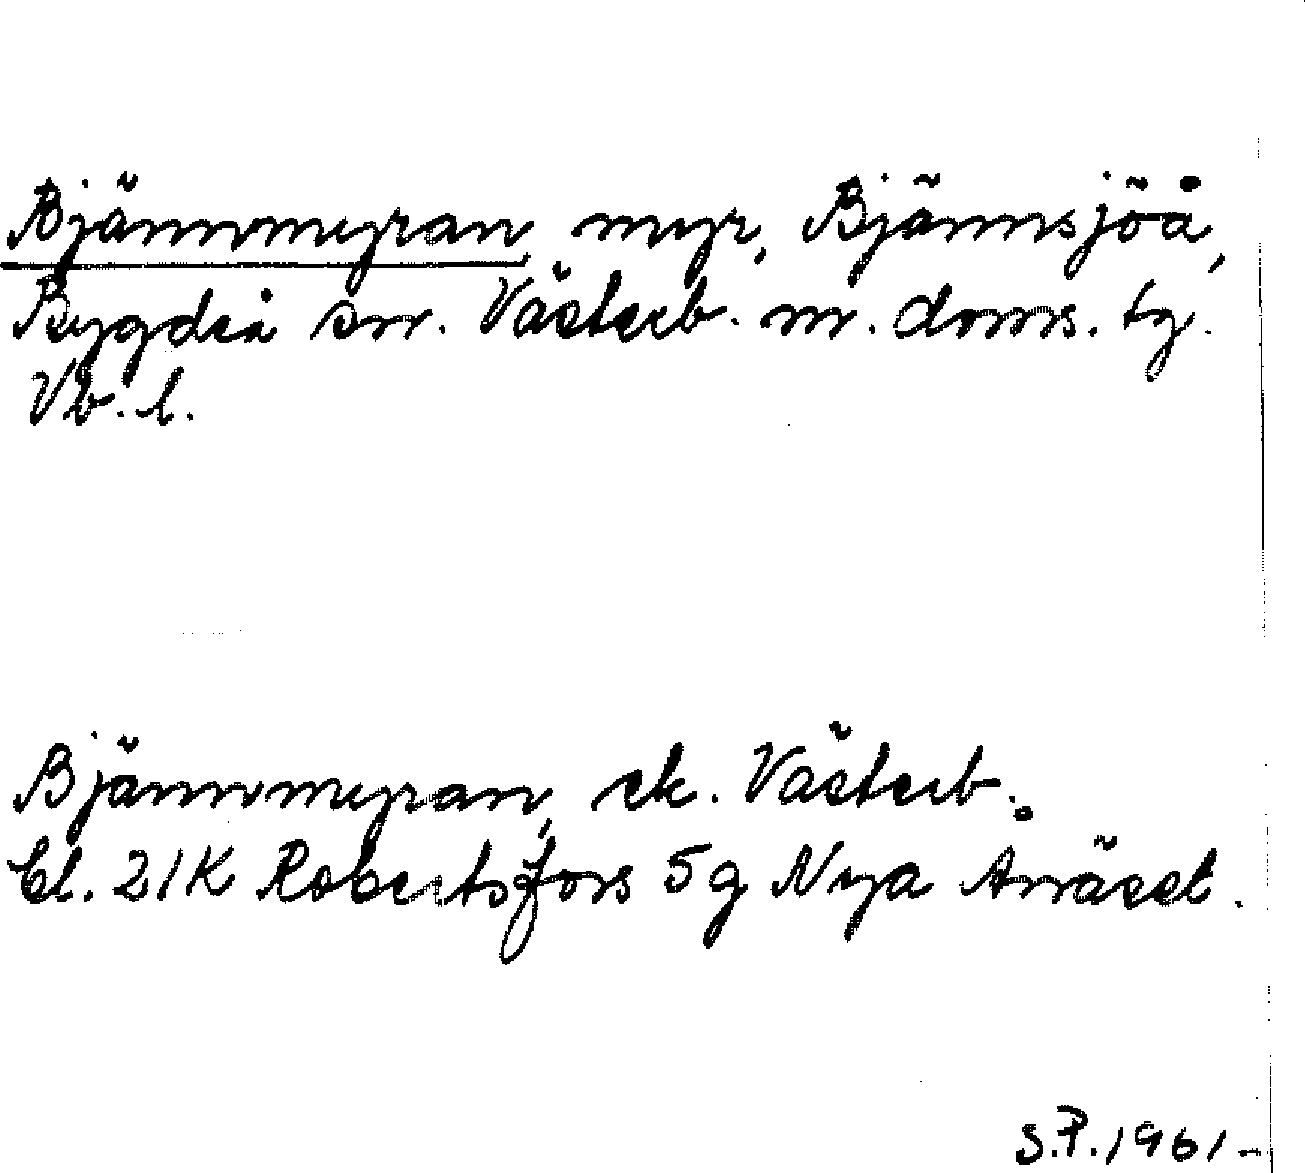 Bjännmyran, myr, Bjännsjöå,
Bygdeå sn. Västerb. m. doms. tg.
Vb. l.
Bjännmyran, ek. Västerb.
Bl. 21K Robertsfors 5g Nya Anäset.
S.P. 1961-